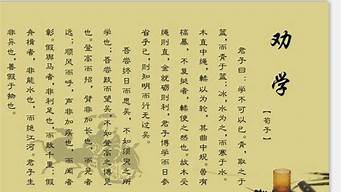 劝学
【荀子】
君子曰:学不可以已。青,取之于
蓝,而青于蓝;冰,水为之,而寒于水。
木直中绳,輮以为轮,其曲中规。虽有
槁暴,不复挺者,輮使之然也。故木受
绳则直,金就砺则利,君子博学而日参
省乎己,则知明而行无过矣。
吾尝终日而思矣,不如须臾之所
学也;吾尝跂而望矣,不如登高之博见
也。登高而招,臂非加长也,而见者
远;顺风而呼,声非加疾也,而闻者
彰。假舆马者,非利足也,而致千里;假
舟楫者,非能水也,而绝江河。君子生
非异也,善假于物也。